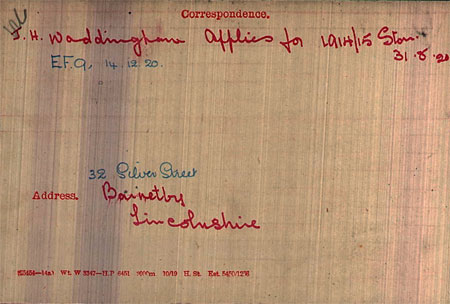 Correspondence.
J. H. Waddingham Applies for 1914/15 Star.
31.8.20
EF9, 14.12.20.
32 Silver Street
Address. Barnetby
Lincolnshire
Wt. W 3347—H.P 6451 10/19 H. St.